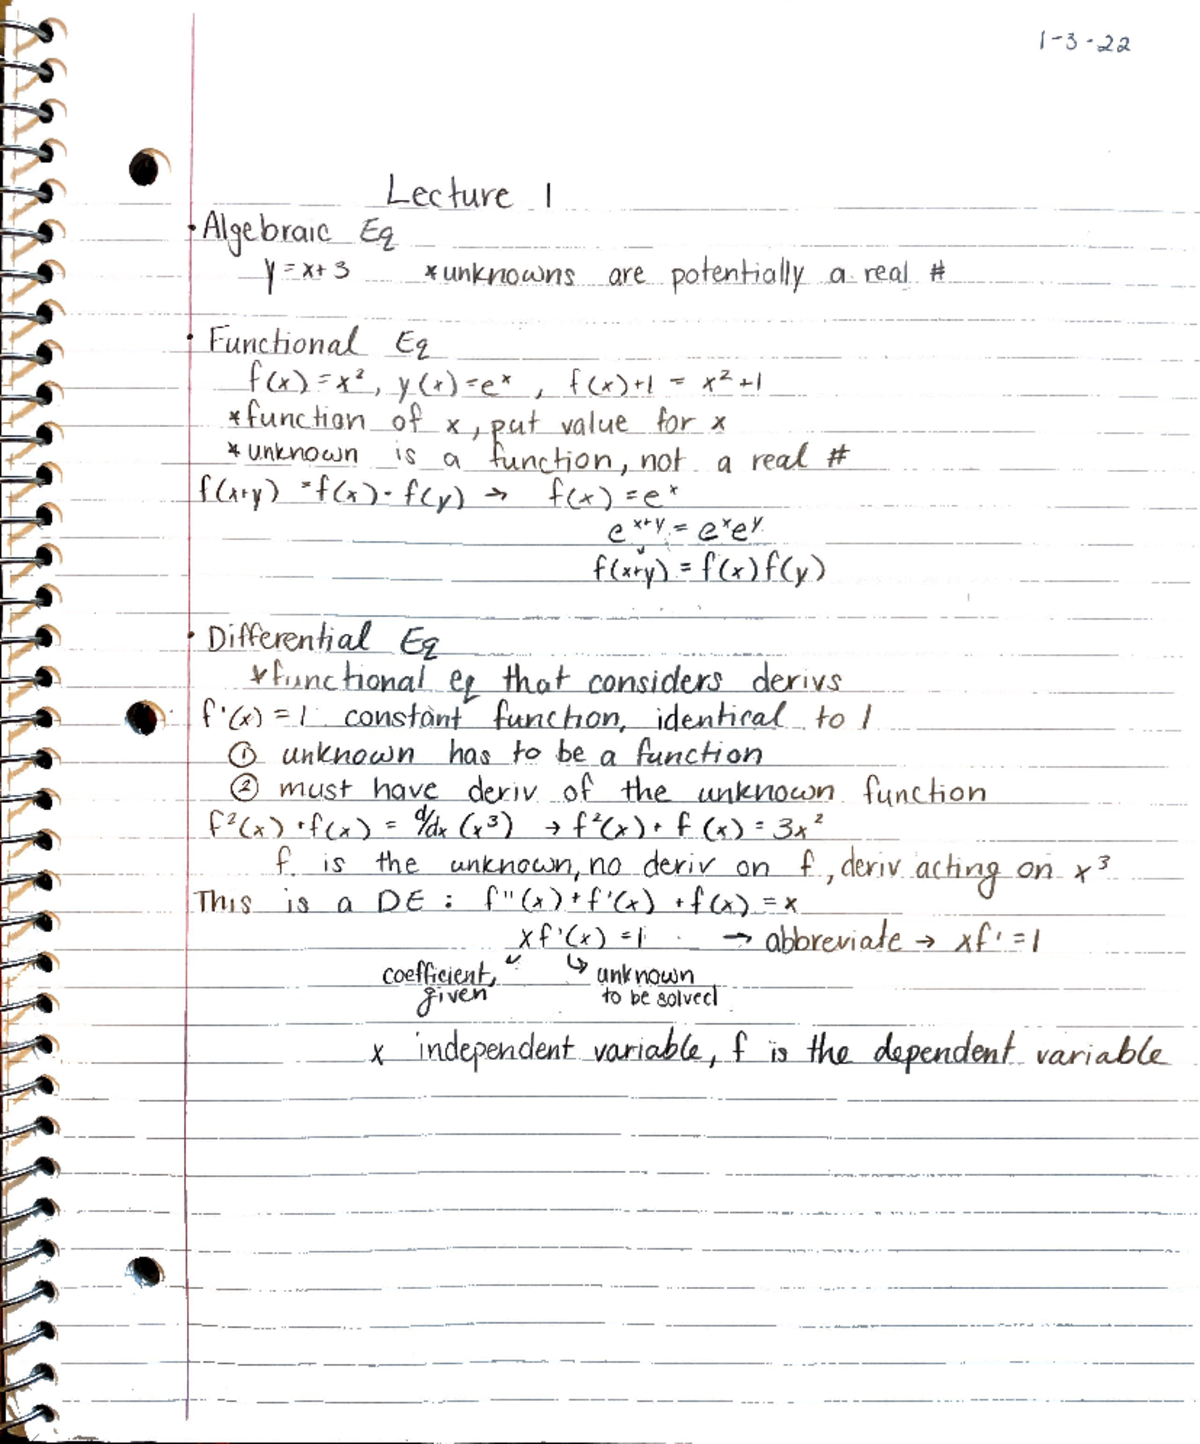 1-3-22
Lecture 1
• Algebraic Eq
y = x + 3 * unknowns are potentially a real #
• Functional Eq
f(x) = x², y(x) = eˣ, f(x)+1 = x²+1
* function of x, put value for x
* unknown is a function, not a real #
f(x+y) = f(x) · f(y) → f(x) = eˣ
eˣ⁺ʸ = eˣeʸ
f(x+y) = f(x)f(y)
• Differential Eq
* functional eq that considers derivs
f'(x) = 1 constant function, identical to 1
① unknown has to be a function
② must have deriv of the unknown function
f²(x) + f(x) = d/dx (x³) → f²(x) + f(x) = 3x²
f is the unknown, no deriv on f, deriv acting on x³
This is a DE : f''(x) + f'(x) + f(x) = x
xf'(x) = 1 → abbreviate → xf' = 1
coefficient, ↳ unknown
given to be solved
x independent variable, f is the dependent variable